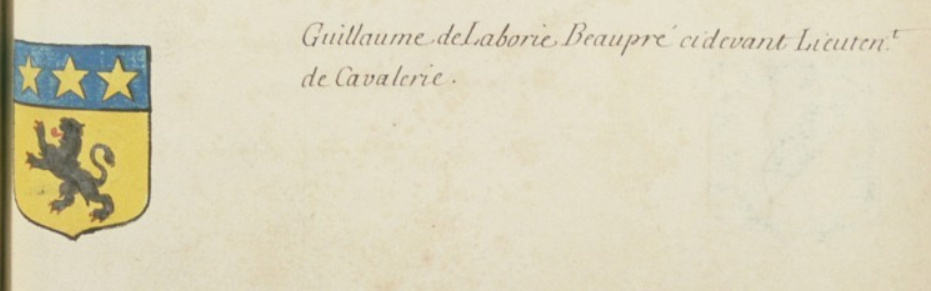 Guillaume de Laborie Beaupré cidevant Lieuten.t
de Cavalerie.